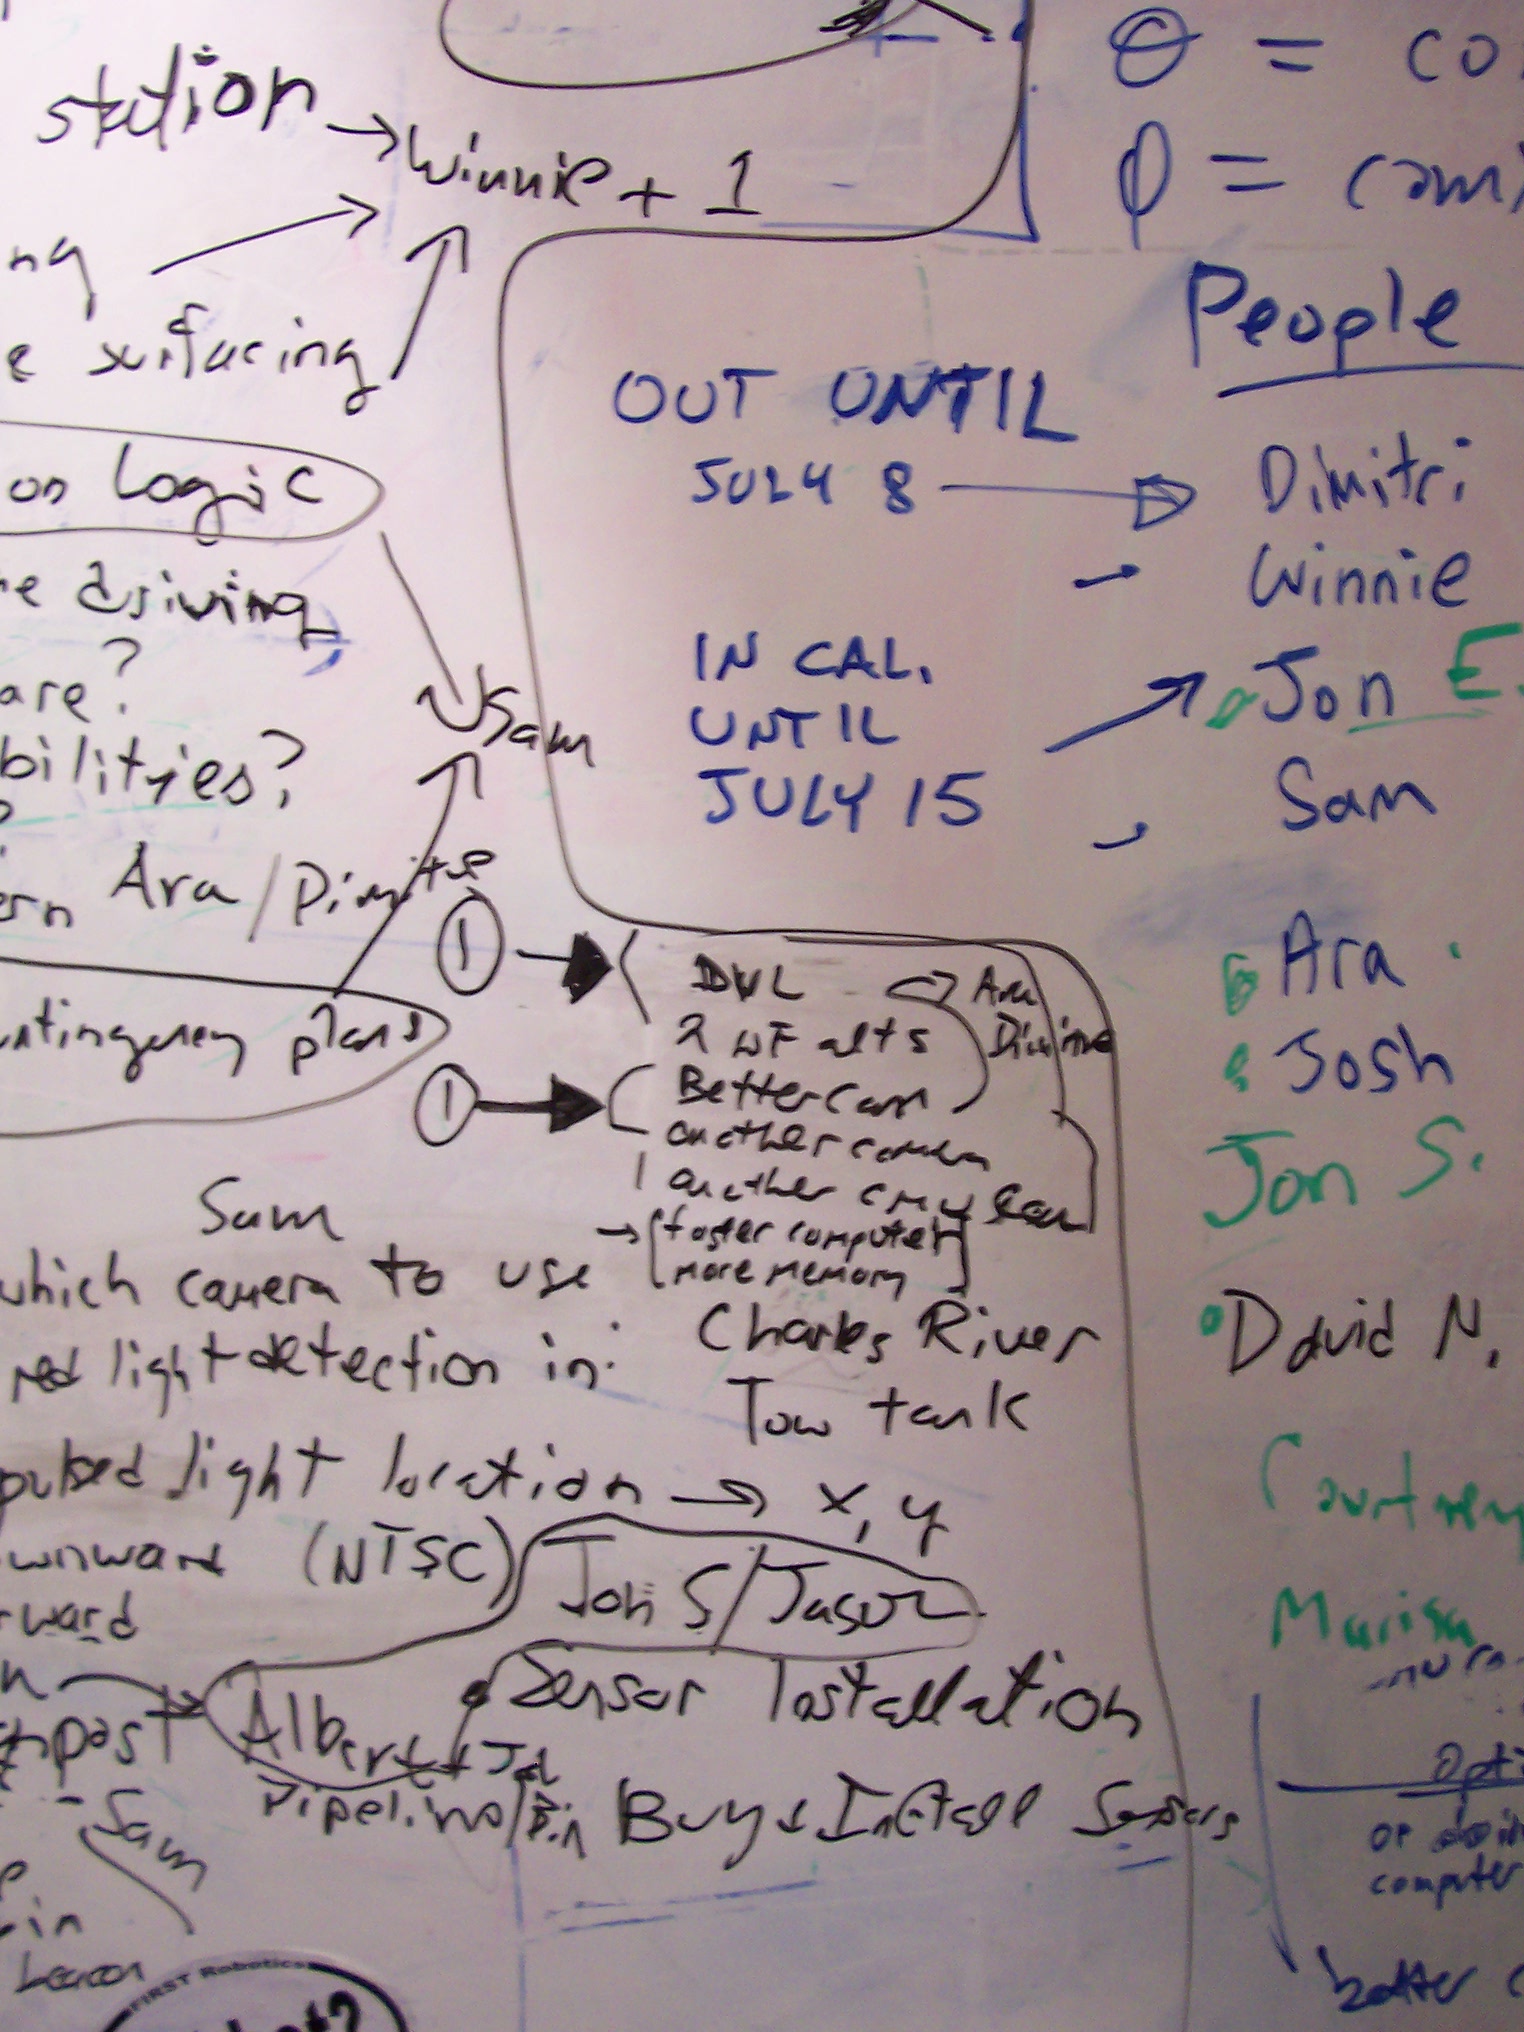 station → Winnie + 1
ng
e surfacing
on Logic
driving
are?
bilities?
Sam
Ara / Dimitri
plans
Θ = co
φ = cam
People
OUT UNTIL
JULY 8 → Dimitri
Winnie
IN CAL.
UNTIL
JULY 15
Jon E.
Sam
Ara
Josh
Jon S.
David N.
Courtney
Marisa
① → DVL
Ara
2 WF alts
① → Better Cam
another camera
another
faster computer
more memory
Sam
which camera to use
red light detection in:
Charles River
Tow tank
pulsed light location → x, y
(NTSC)
ward
Jon S/Jason
Sensor Installation
Albert +
Pipeline/Bin
Buy + Install Sensors
Sam
in
FIRST Robotics
Opti
or
computer
better c